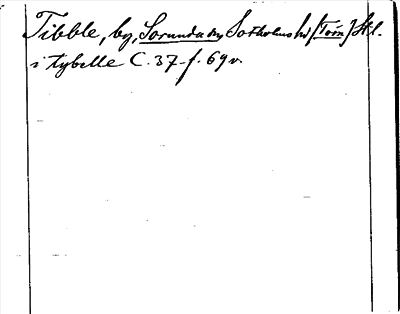 Tibble, by, Sorunda sn Sotholms hd [Törn] Stl.
i tybelle C. 37 f. 69 v.